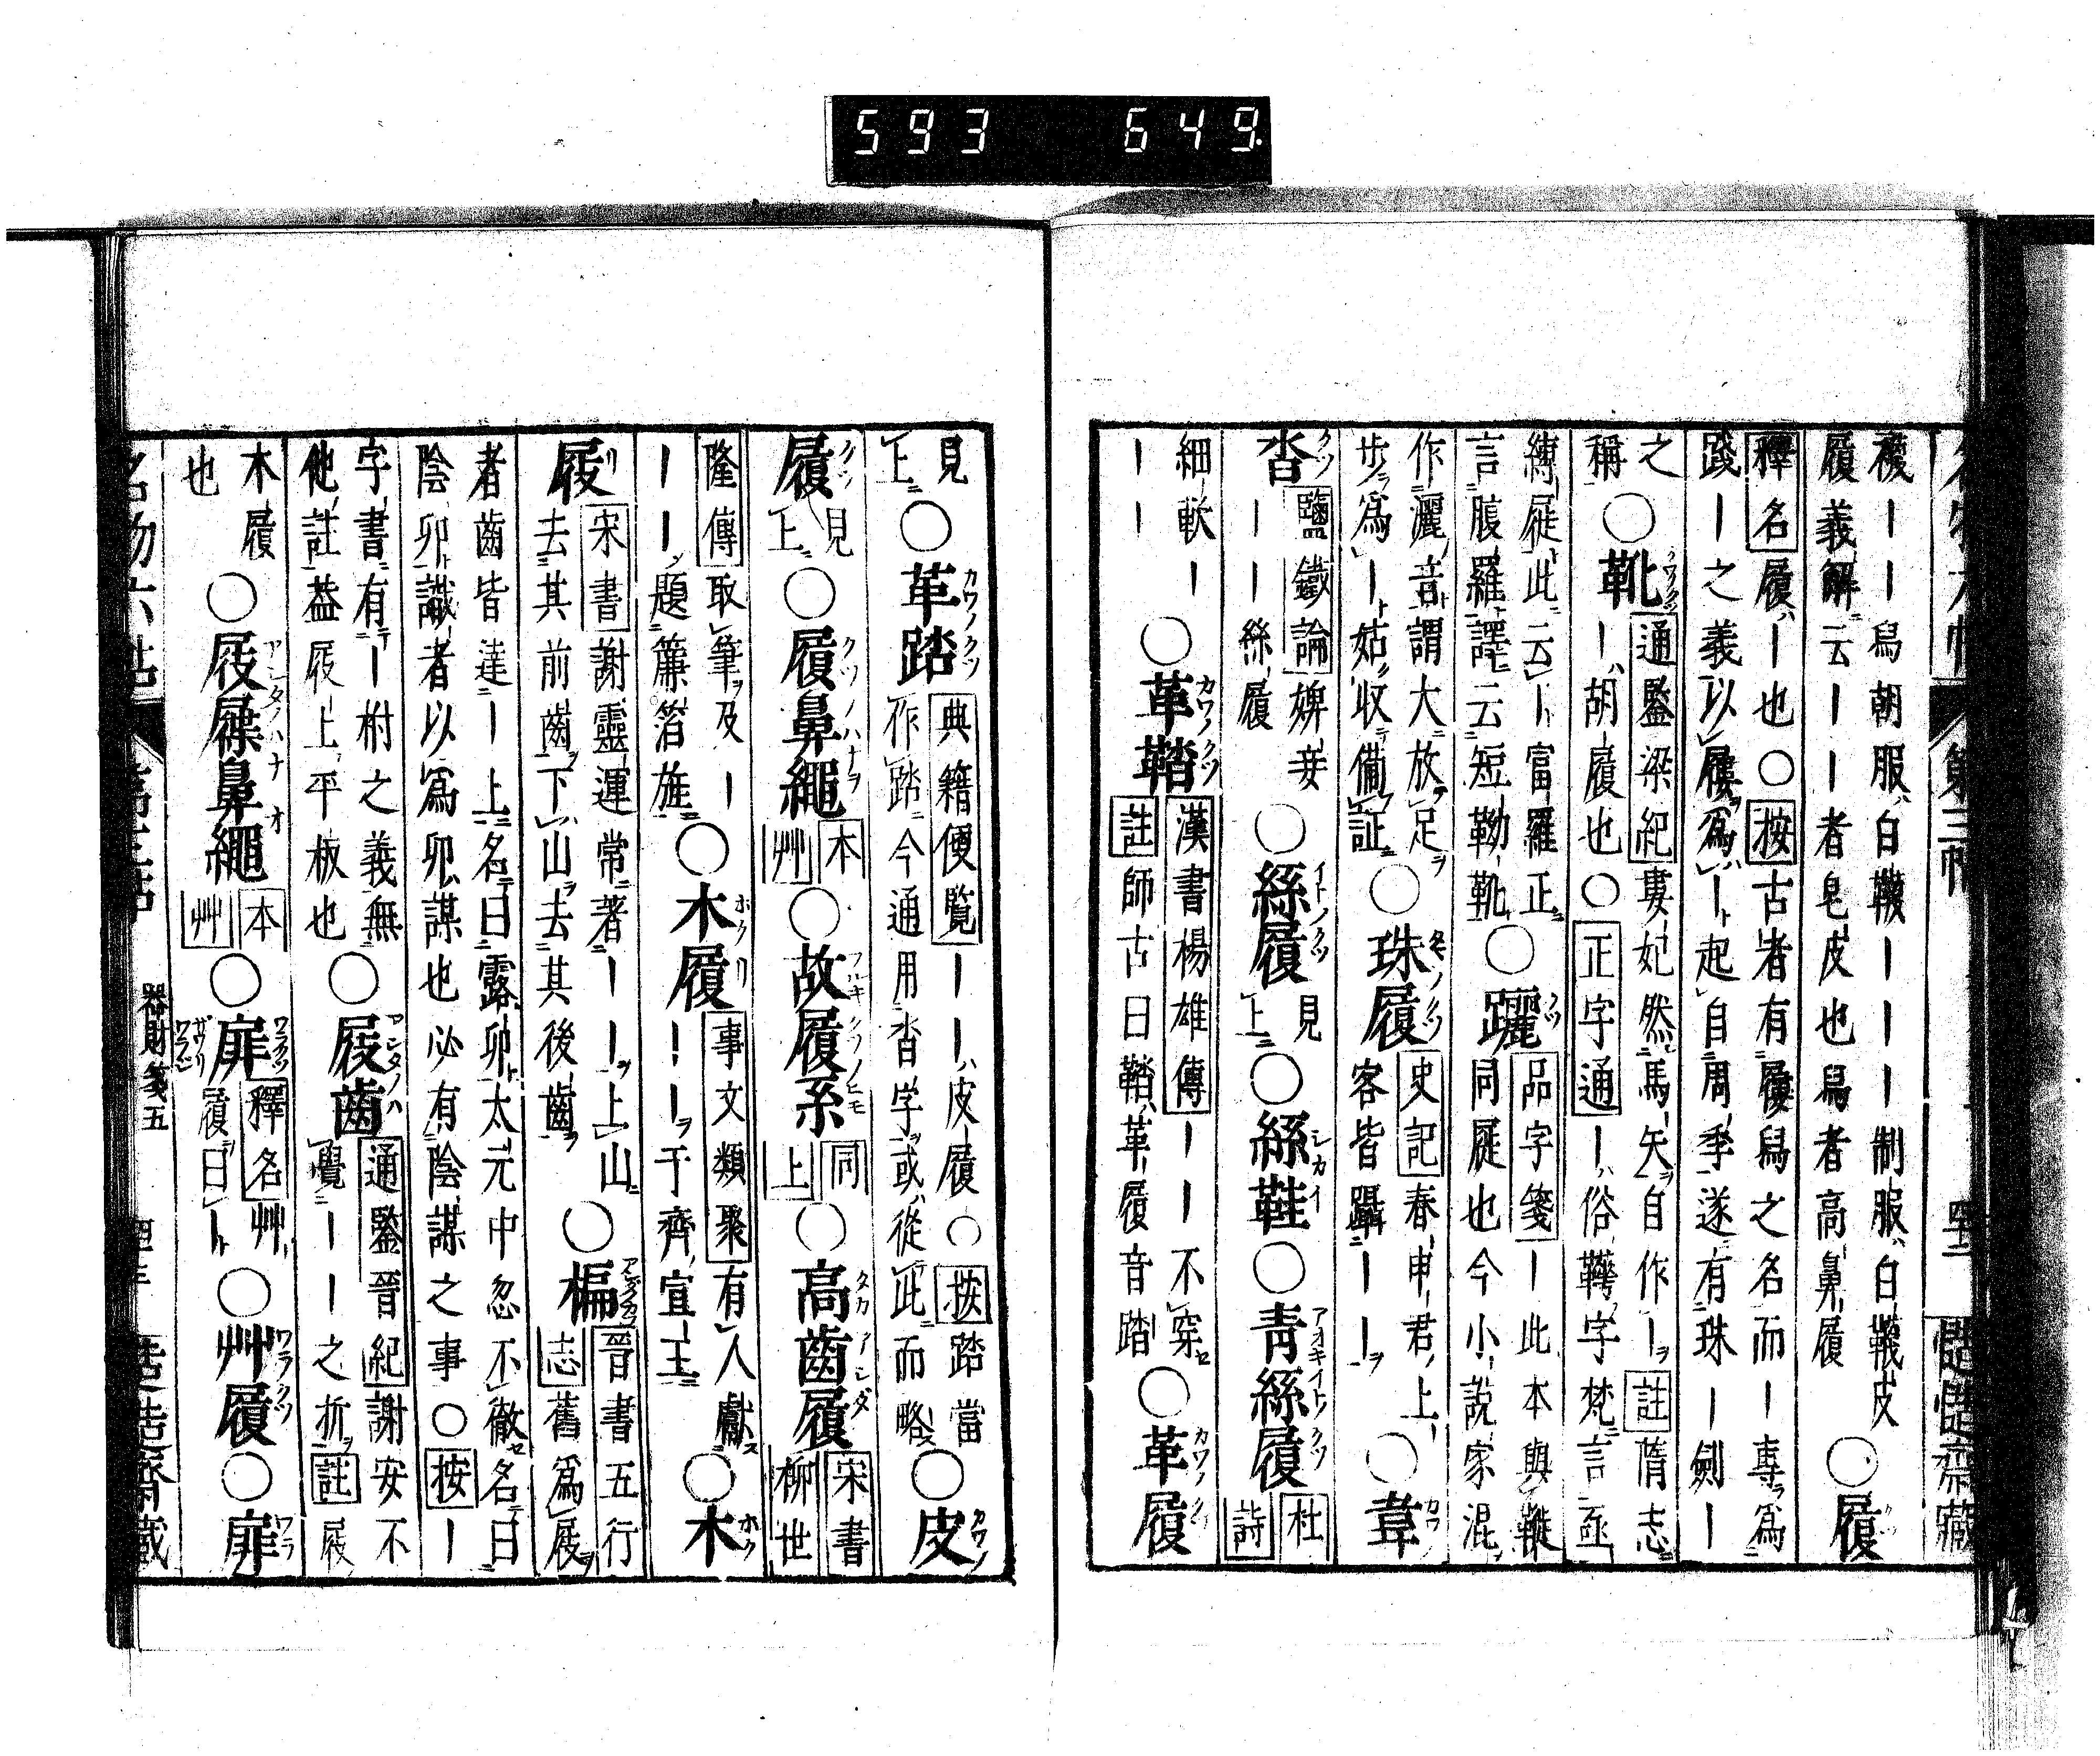 593 649.
名物六帖 第三帖 四十二 㦮㦮齋藏
襪｜｜舄朝服白韈｜｜｜制服白韈皮
履義解云｜｜者皂皮也舄者高鼻履 ○履
釋名履｜也○按古者有屨舄之名而｜專爲
踐｜之義以屨爲｜起自周季遂有珠｜劍｜
之
稱 ○靴 通鑒梁紀婁妃然馬矢自作｜註隋志
｜胡履也○正字通｜俗鞾字梵言亟
縛屣此云｜富羅正
言腹羅譯云短靿靴 ○躧 品字箋｜此本與鞾
同屣也今小說家混
作灑音謂大放足
步爲｜姑收備証 ○珠履 史記春申君上
客皆躡｜｜ ○韋
沓 鹽鐵論婢妾
｜｜｜絲履 ○絲履 見
上 ○絲鞋 ○青絲履 杜
詩
細軟｜
｜｜ ○革鞜 漢書楊雄傳｜｜不穿
註師古曰鞜革履音踏 ○革履
見
上 ○革踏 典籍便覧｜｜皮履○按踏當
作踏今通用沓字或從此而略 ○皮
履 見
上 ○履鼻繩 本
艸 ○故履系 同
上 ○高齒履 宋書
柳世
隆傳取筆及｜
｜｜題簾箔旌 ○木履 事文類聚有人獻
｜｜｜于齊宣王 ○木
屐 宋書謝靈運常著｜｜上山
去其前齒下山去其後齒 ○楄 晉書五行
志舊爲屐
者齒皆達｜上名曰露卯太元中忽不徹名曰
陰卯識者以爲卯謀也必有陰謀之事○按｜
字書有｜柎之義無
他註葢屐上平板也 ○屐齒 通鑒晉紀謝安不
覺｜｜之折註屐
木履
也 ○屐屧鼻繩 本
艸 ○扉 釋名艸
履曰｜ ○艸履 ○扉
名物六帖 第三帖 器財箋五 四十三 㦮㦮齋藏